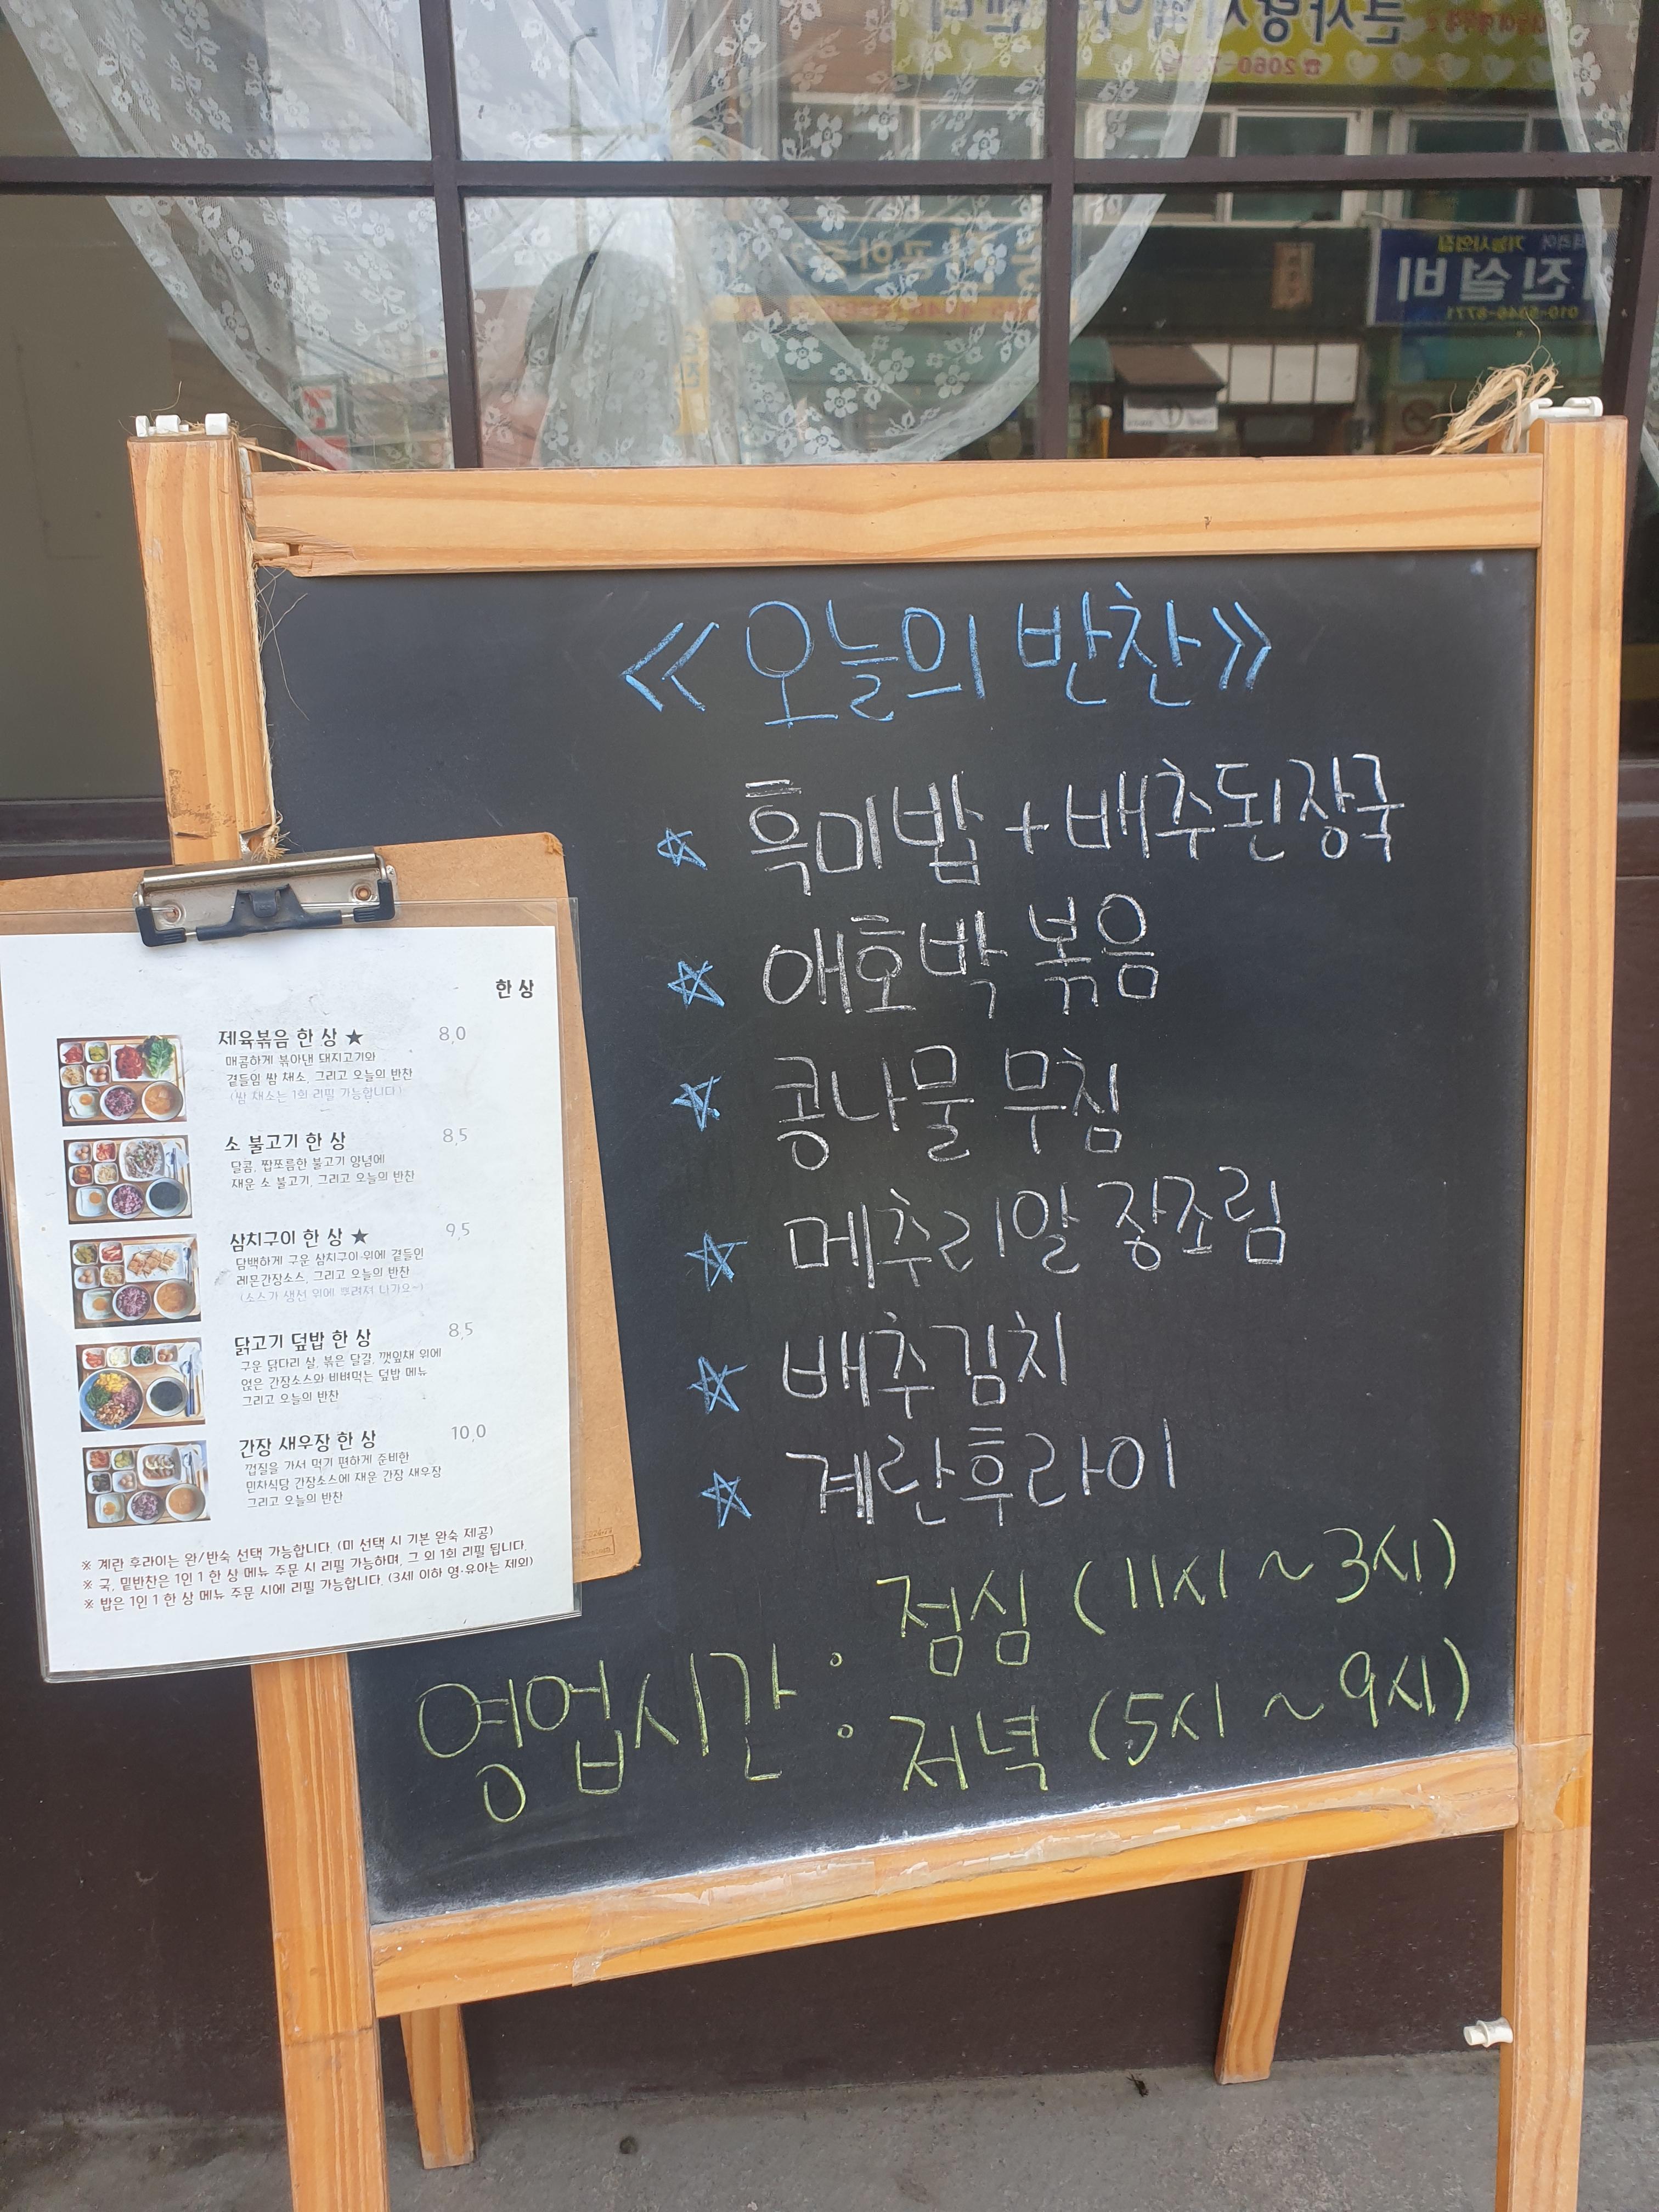 <<오늘의 반찬>>
☆ 흑미밥 + 배추된장국
☆ 애호박 볶음
☆ 콩나물 무침
☆ 메추리알 장조림
☆ 배추김치
☆ 계란후라이
영업시간 : 점심 (11시 ~ 3시)
저녁 (5시 ~ 9시)
한 상
제육볶음 한 상 ★ 8,0
매콤하게 볶아낸 돼지고기와
곁들임 쌈 채소, 그리고 오늘의 반찬
(쌈 채소는 1회 리필 가능합니다)
소 불고기 한 상 8,5
달콤, 짭쪼름한 불고기 양념에
재운 소 불고기, 그리고 오늘의 반찬
삼치구이 한 상 ★ 9,5
담백하게 구운 삼치구이 위에 곁들인
레몬간장소스, 그리고 오늘의 반찬
(소스가 생선 위에 뿌려져 나가요~)
닭고기 덮밥 한 상 8,5
구운 닭다리 살, 볶은 달걀, 깻잎채 위에
얹은 간장소스와 비벼먹는 덮밥 메뉴
그리고 오늘의 반찬
간장 새우장 한 상 10,0
껍질을 가서 먹기 편하게 준비한
민차식당 간장소스에 재운 간장 새우장
그리고 오늘의 반찬
※ 계란 후라이는 완/반숙 선택 가능합니다. (미 선택 시 기본 완숙 제공)
※ 국, 밑반찬은 1인 1 한 상 메뉴 주문 시 리필 가능하며, 그 외 1회 리필 됩니다.
※ 밥은 1인 1 한 상 메뉴 주문 시에 리필 가능합니다. (3세 이하 영·유아는 제외)
진설비